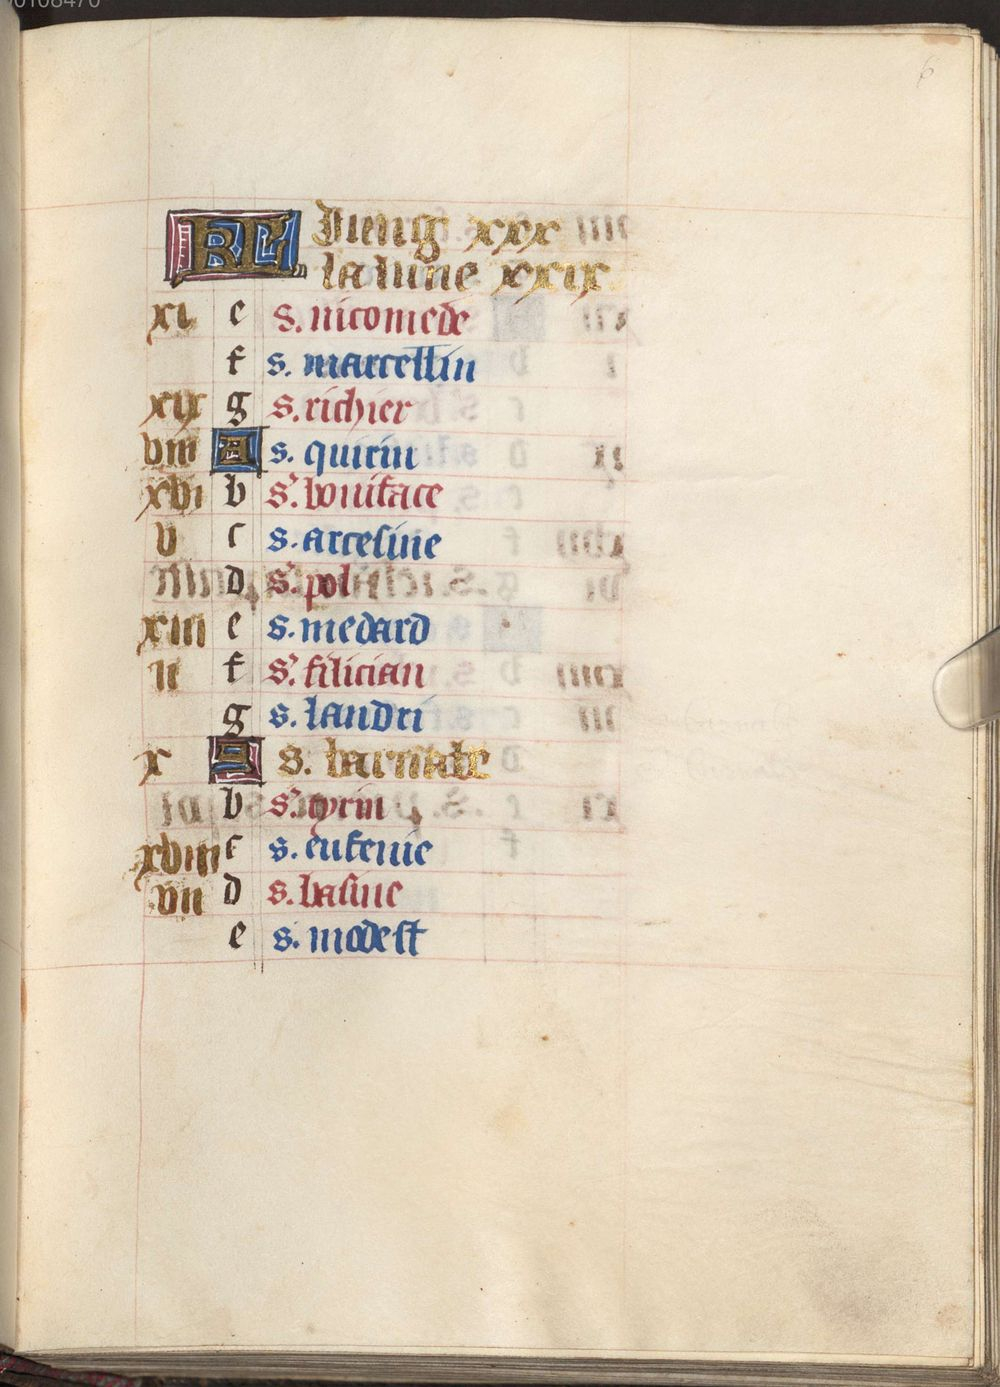 00108470
6
KL Jung xxx
la lune xxix
xi e s. nicomede
f s. marcellin
xix g s. richier
viii A s. quirin
xvi b s'. boniface
v c s. arcesine
d s'. pol
xiii e s. medard
ii f s'. filician
g s. landri
x A s. barnabe
b s'. cyrin
xviii c s. eufenie
vii d s. basine
e s. modest